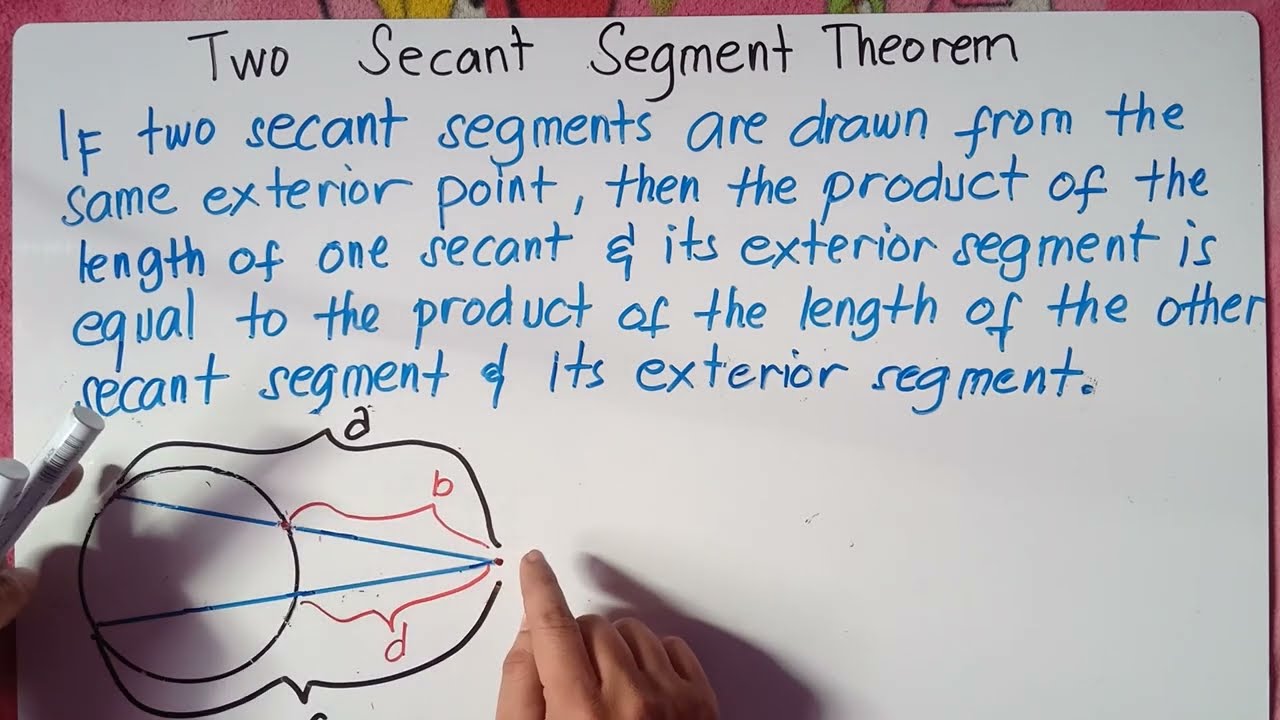 Two Secant Segment Theorem
IF two secant segments are drawn from the
same exterior point, then the product of the
length of one secant & its exterior segment is
equal to the product of the length of the other
secant segment & its exterior segment.
a
b
d